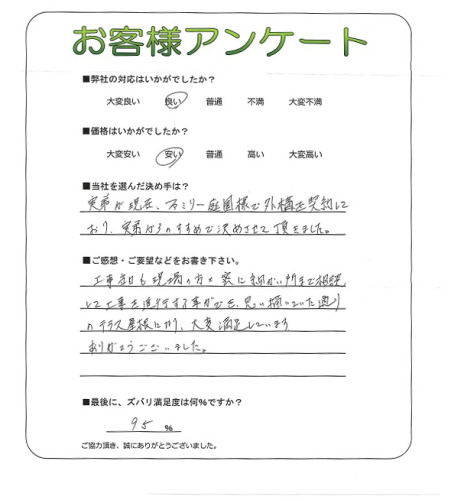 お客様アンケート
■弊社の対応はいかがでしたか？
大変良い 良い 普通 不満 大変不満
■価格はいかがでしたか？
大変安い 安い 普通 高い 大変高い
■当社を選んだ決め手は？
実弟が現在、ファミリー庭園様で外構を契約して
おり、実弟からのすすめで決めさせて頂きました。
■ご感想・ご要望などをお書き下さい。
工事担も現場の方と密に細かい所まで相談
して工事を進行する事ができ、思い描いていた通り
のテラス屋根になり、大変満足しています
ありがとうございました。
■最後に、ズバリ満足度は何%ですか？
95 %
ご協力頂き、誠にありがとうございました。